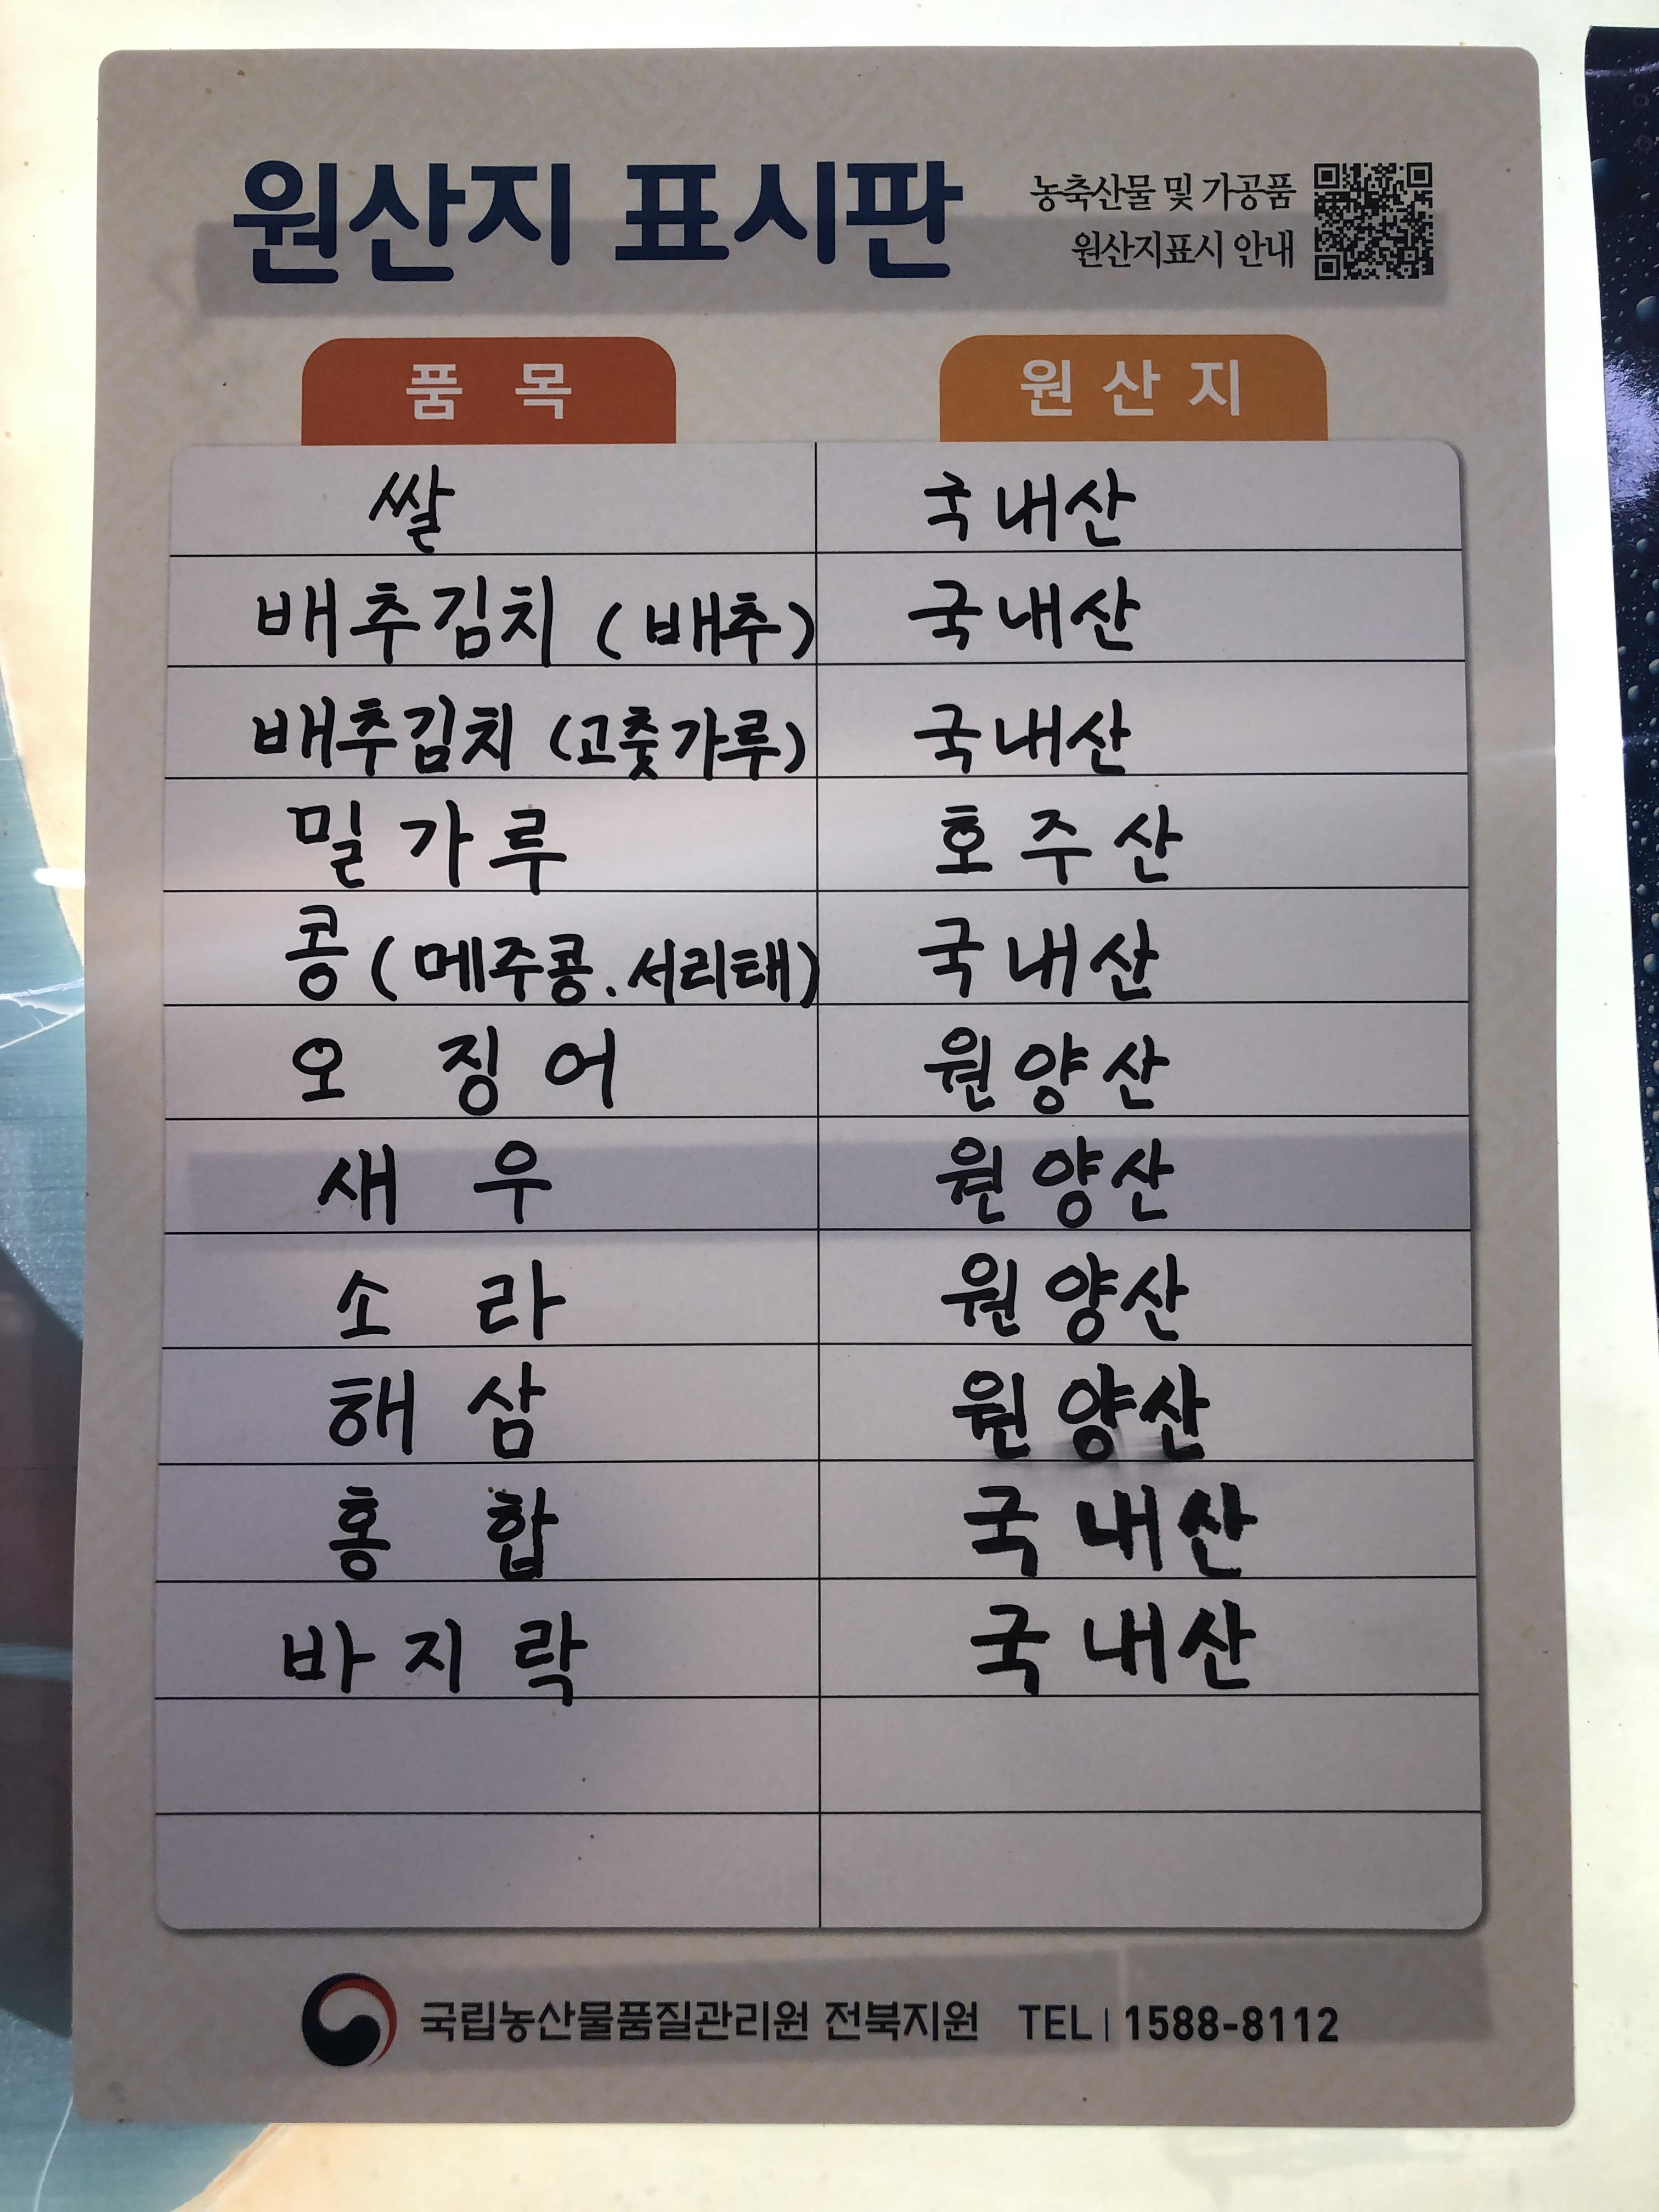 원산지 표시판
농축산물 및 가공품
원산지표시 안내
품 목 원 산 지
쌀 국내산
배추김치 (배추) 국내산
배추김치 (고춧가루) 국내산
밀가루 호주산
콩 (메주콩.서리태) 국내산
오징어 원양산
새우 원양산
소라 원양산
해삼 원양산
홍합 국내산
바지락 국내산
국립농산물품질관리원 전북지원 TEL | 1588-8112